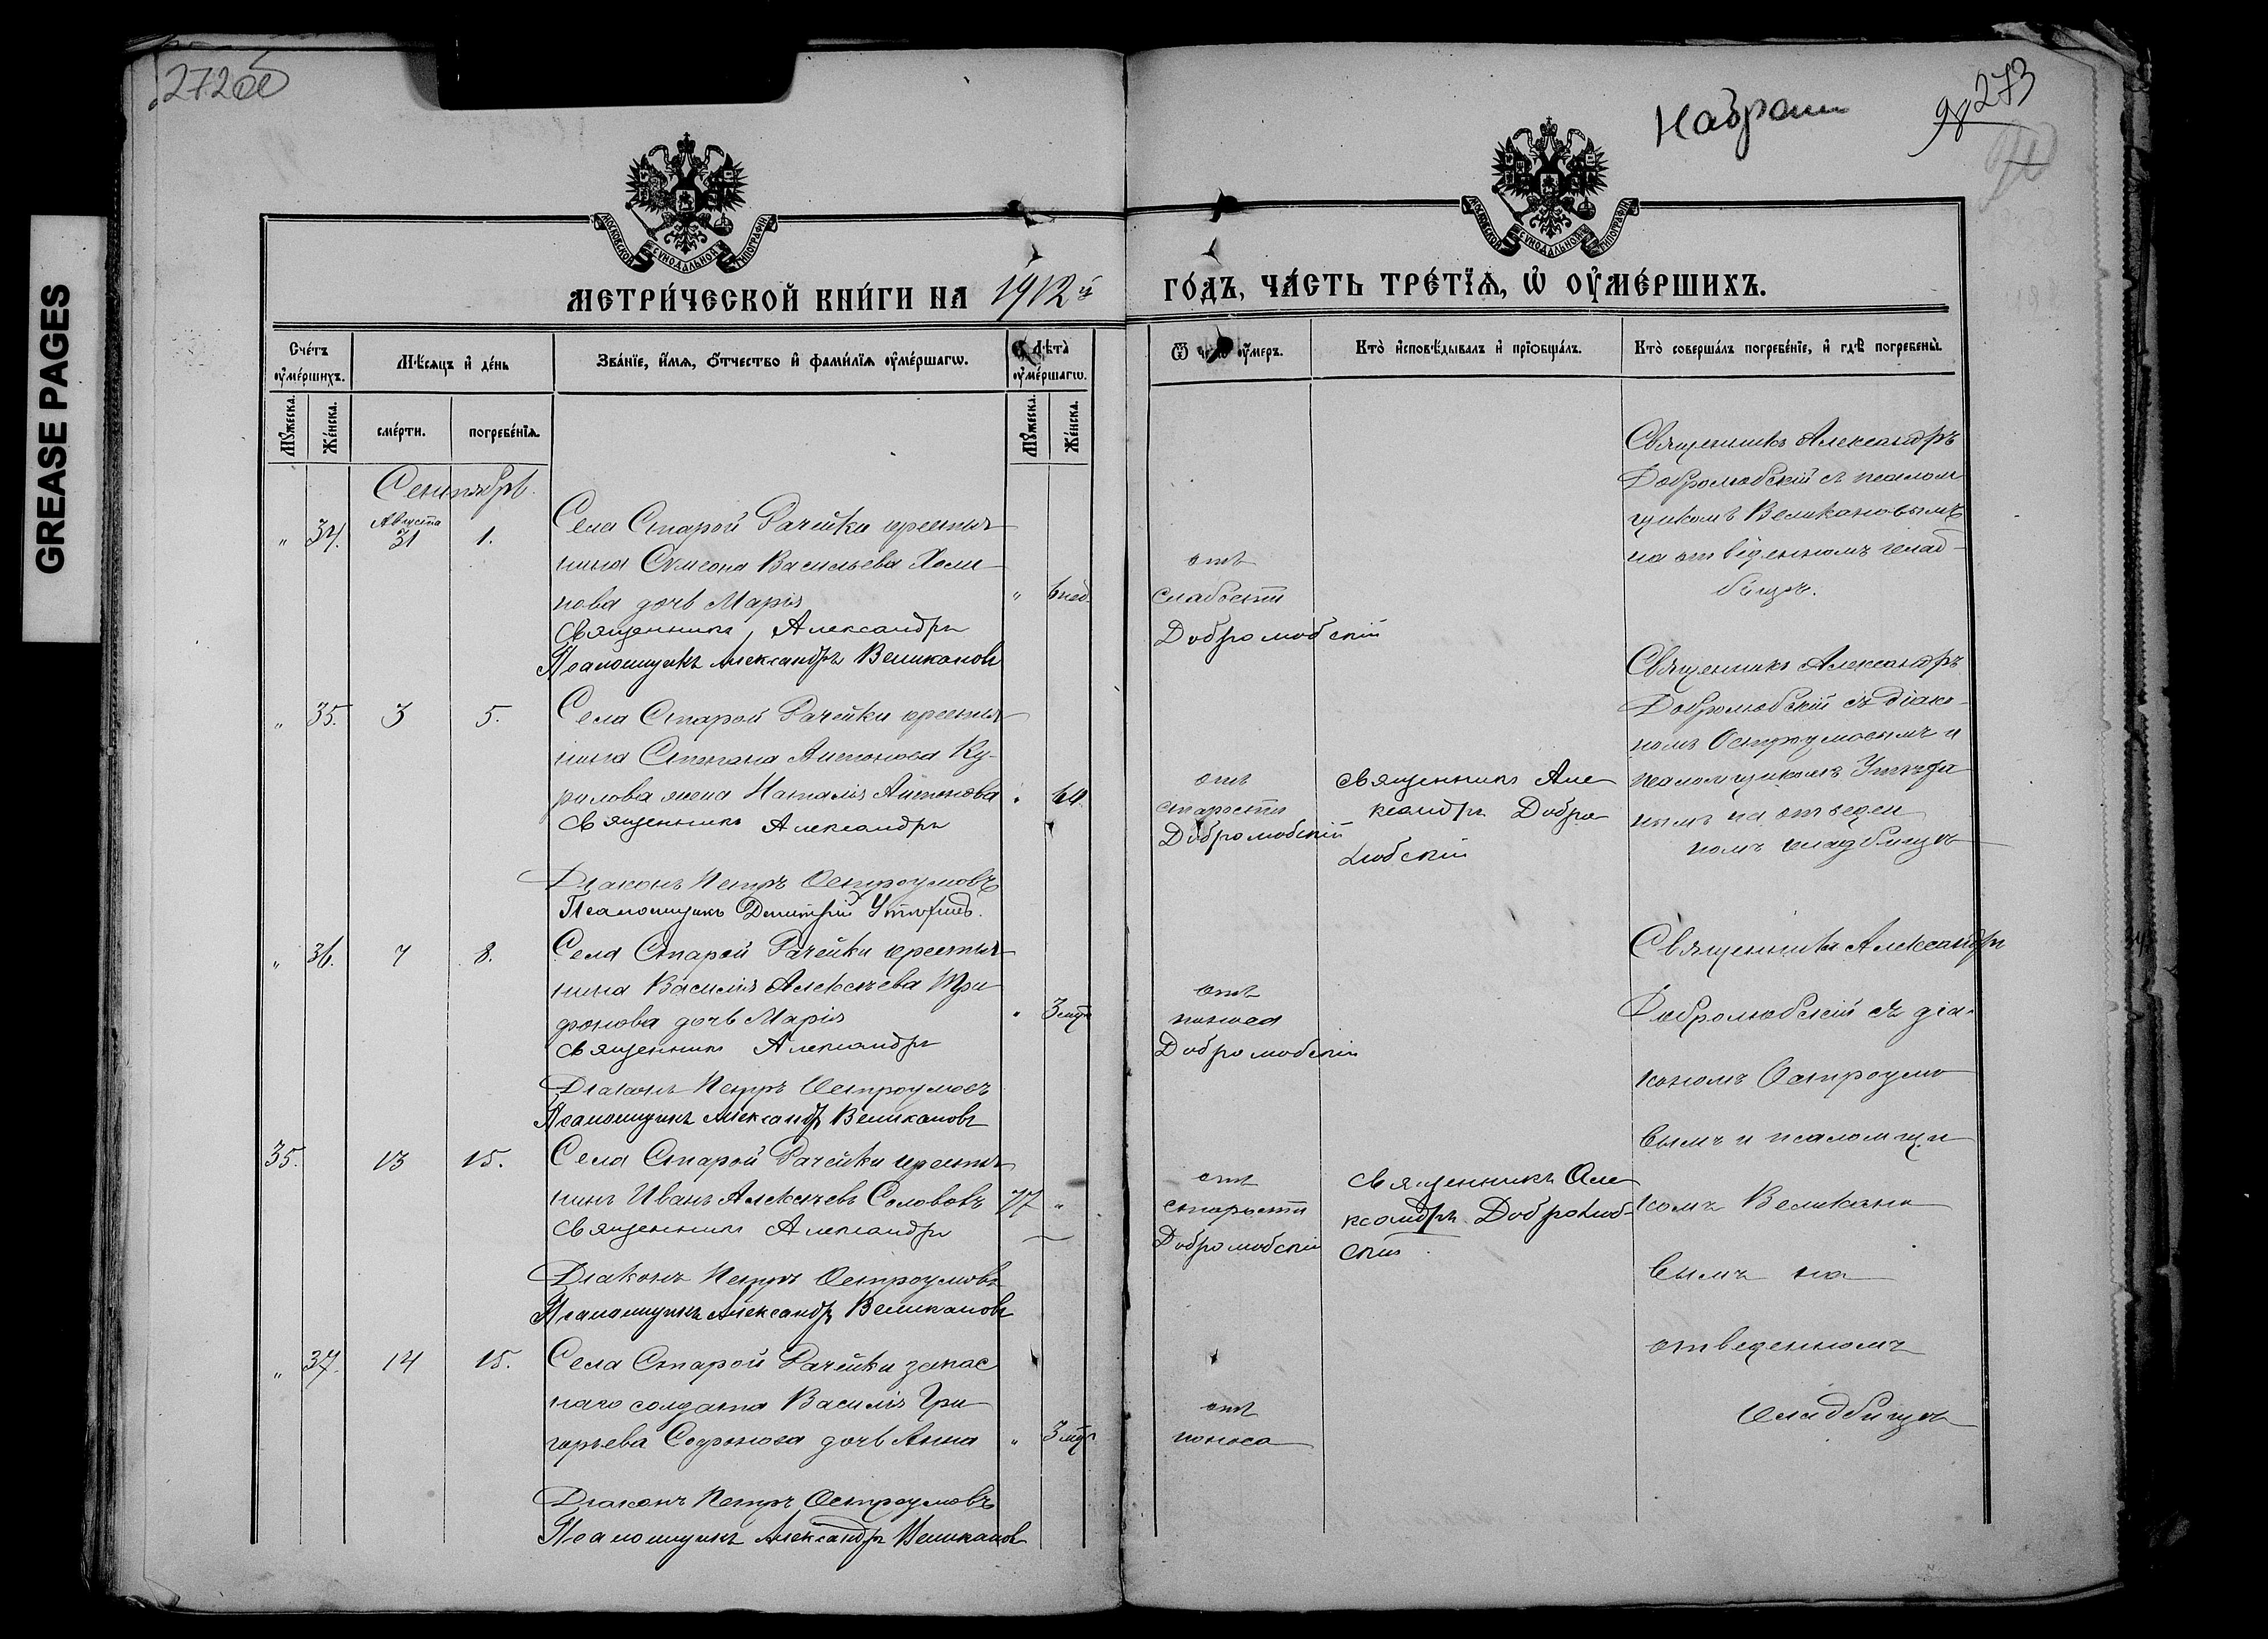 GREASE PAGES
272об
273
98
МОСКОВСКОЙ СУНОДАЛЬНОЙ ТИПОГРАФІИ
МОСКОВСКОЙ СУНОДАЛЬНОЙ ТИПОГРАФІИ
МЕТРИ́ЧЕСКОЙ КНИ́ГИ НА 1912й
ГО́ДЪ, ЧА́СТЬ ТРЕ́ТЇѦ, Ѡ҆ ОУ҆МЕ́РШИХЪ.
Сче́тъ оу҆ме́ршихъ.
Мѣ́сѧцъ и҆ де́нь
Зва́нїе, и҆́мѧ, ѻ҆́тчество и҆ фами́лїѧ оу҆ме́ршагѡ.
Лѣ́та оу҆ме́ршагѡ.
Мꙋ́жеска.
Же́нска.
сме́рти.
погребе́нїѧ.
Мꙋ́жеска.
Же́нска.
Ѿ чегѡ̀ оу҆́меръ.
Кто̀ и҆сповѣ́дывалъ и҆ прїѡбща́лъ.
Кто̀ соверша́лъ погребе́нїе, и҆ гдѣ̀ погребены̀.
Сентябрь.
" 34. Августа 31 1.
Села Старой Рачейки крестья-
нина Симеона Васильева
дочь Марія " 6 нед.
Священникъ Александръ
Псаломщикъ Александръ Великановъ
отъ
слабости
Добролюбскій
Священникъ Александръ
Добролюбскій съ псалом
щикомъ Великановымъ
на отведенномъ клад-
бищѣ.
" 35. 3 5.
Села Старой Рачейки крестья-
нина Степана Антонова Ку-
рилова жена Наталія Антонова " 64
Священникъ Александръ
Діаконъ Петръ Остроумовъ
Псаломщикъ Димитрій
отъ
старости
Добролюбскій
Священникъ Але
ксандръ Добро
любскій
Священникъ Александръ
Добролюбскій съ діако-
номъ Остроумовымъ и
псаломщикомъ
на отведен
номъ кладбищѣ
" 36. 7 8.
Села Старой Рачейки крестья-
нина Василія Алексѣева Три
фонова дочь Марія " 3 мѣс
Священникъ Александръ
Діаконъ Петръ Остроумовъ
Псаломщикъ Александръ Великановъ
отъ
поноса
Добролюбскій
Священникъ Александръ
Добролюбскій съ діа-
кономъ Остроумо
вымъ и псаломщи
комъ Великано
вымъ на
отведенномъ
кладбищѣ
35. 13 15.
Села Старой Рачейки крестья-
нинъ Иванъ Алексѣевъ Солововъ 77 "
Священникъ Александръ
Діаконъ Петръ Остроумовъ
Псаломщикъ Александръ Великановъ
отъ
старости
Добролюбскій
Священникъ Але
ксандръ Добролюб-
скій
" 37. 14 15.
Села Старой Рачейки запас
наго солдата Василія Гри
горьева Софонова дочь Анна " 3 мѣс
Діаконъ Петръ Остроумовъ
Псаломщикъ Александръ Великановъ
отъ
поноса